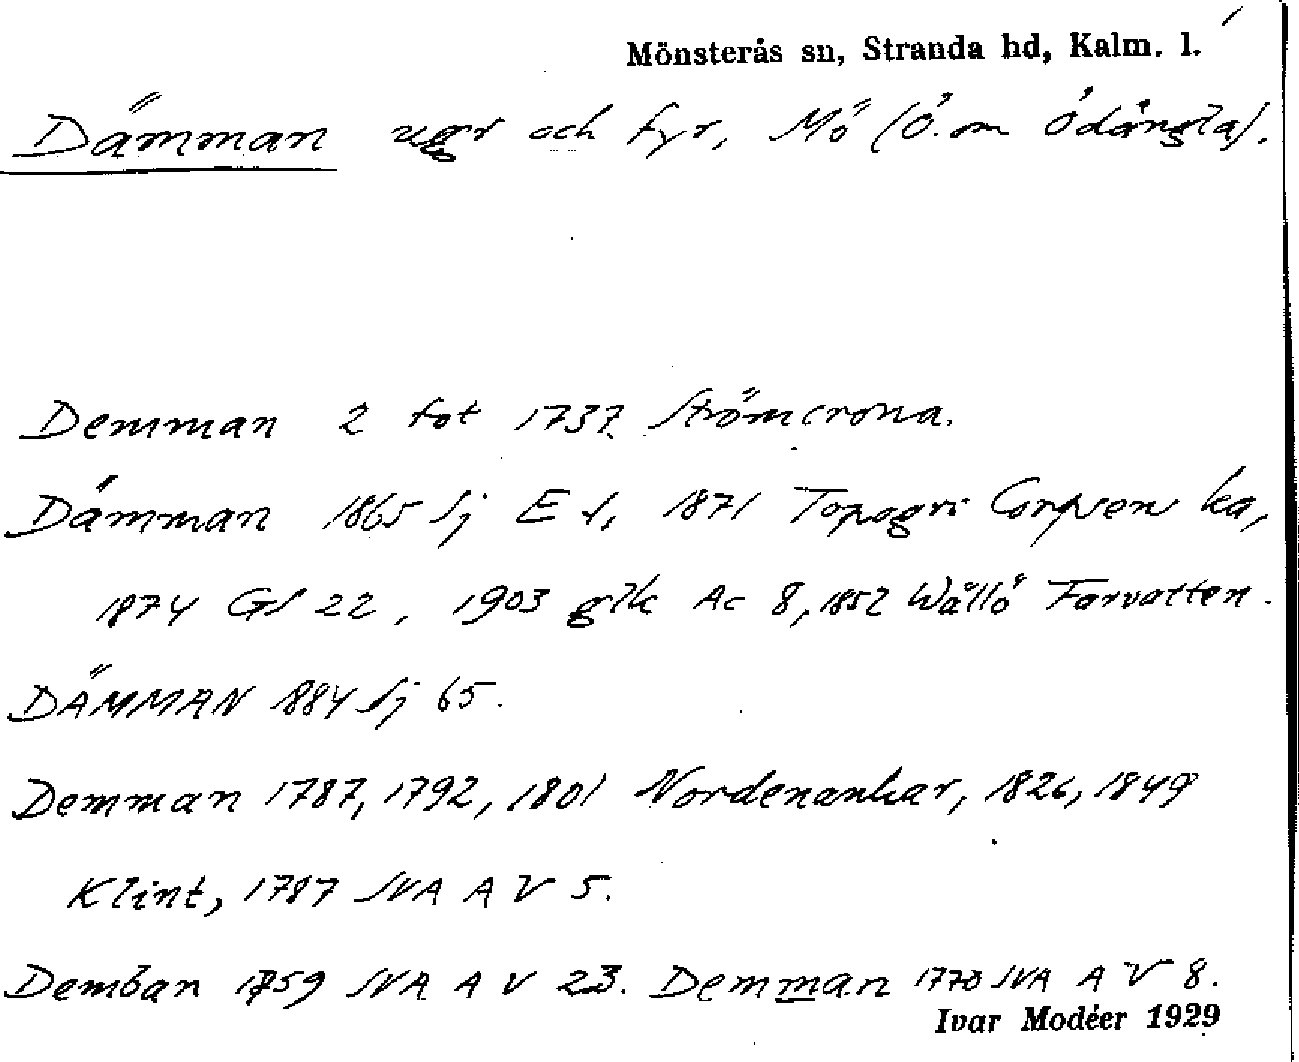 Mönsterås sn, Stranda hd, Kalm. l.
Dämman och fyr, Mö (Ö. om Ödängla).
Demman 2 fot 1737 Strömcrona.
Dämman 1865 Sj E 1, 1871 Topogr. Corpsen ka,
1874 GS 22, 1903 glk Ac 8, 1852 Wållö Farvatten.
DÄMMAN 1884 Sj 65.
Demman 1787, 1792, 1801 Nordenankar, 1826, 1849
Klint, 1787 SVA A V 5.
Demban 1759 SVA A V 23. Demman 1770 SVA A V 8.
Ivar Modéer 1929